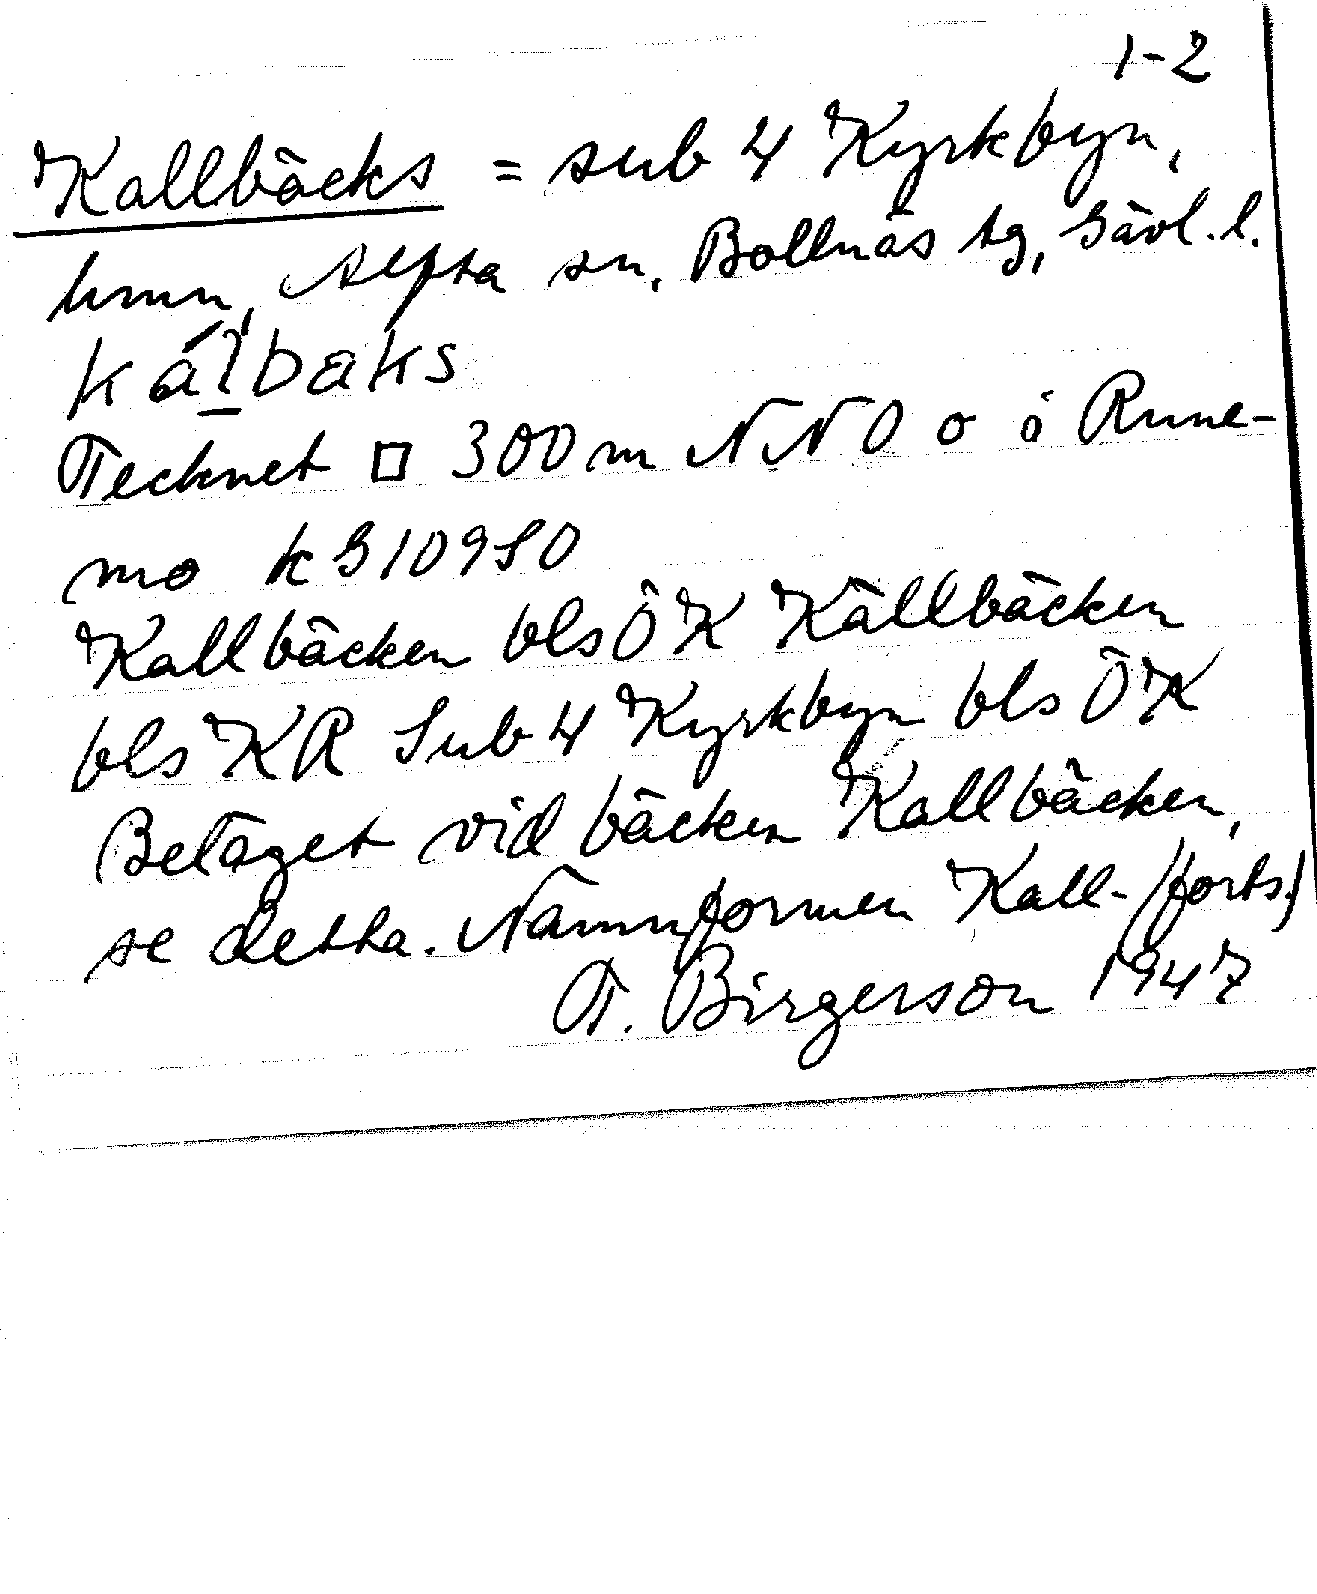 1-2
Kallbäcks = sub 4 Kyrkbyn,
hmn, Alfta sn, Bollnäs tg, Gävl. l.
Tecknet □ 300 m NNO o i Rune-
mo k G10950
Kallbäcken bls ÖK Källbäcken
bls KR Sub 4 Kyrkbyn bls ÖK
Beläget vid bäcken Kallbäcken,
se detta. Namnformen Kall- (forts.)
T. Birgerson 1947